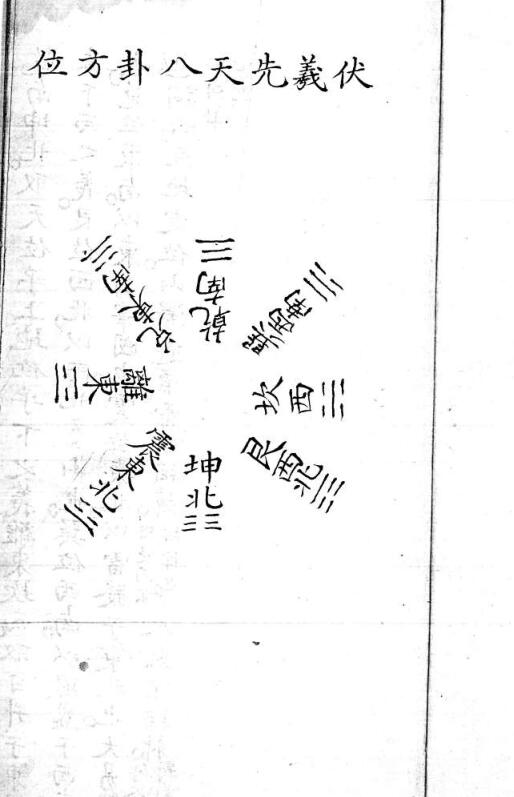 伏羲先天八卦方位
乾南
兌東南
離東
震東北
坤北
艮西北
坎西
巽西南